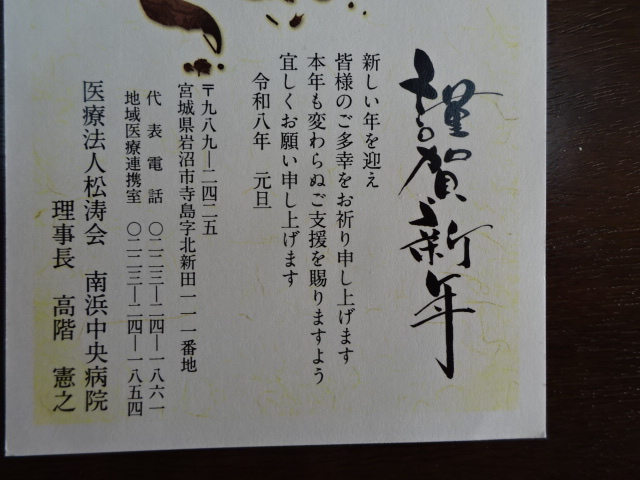 謹賀新年
新しい年を迎え
皆様のご多幸をお祈り申し上げます
本年も変わらぬご支援を賜りますよう
宜しくお願い申し上げます
令和八年 元旦
〒九八九―二四二五
宮城県岩沼市寺島字北新田一一一番地
代表電話 〇二二三―二四―一八六一
地域医療連携室 〇二二三―二四―一八五四
医療法人松涛会 南浜中央病院
理事長 高階 憲之